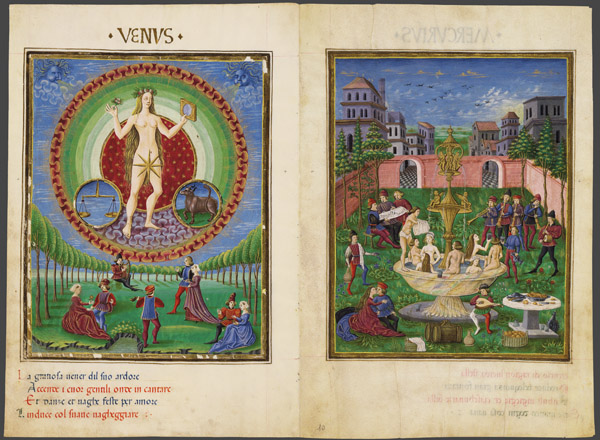 · VENVS ·
La gratiosa uener dil suo ardore
Accende i cuor gentili onde in cantare
Et danze et uaghe feste per amore
Linduce col suaue uagheggiare
· MERCVRIVS ·
10